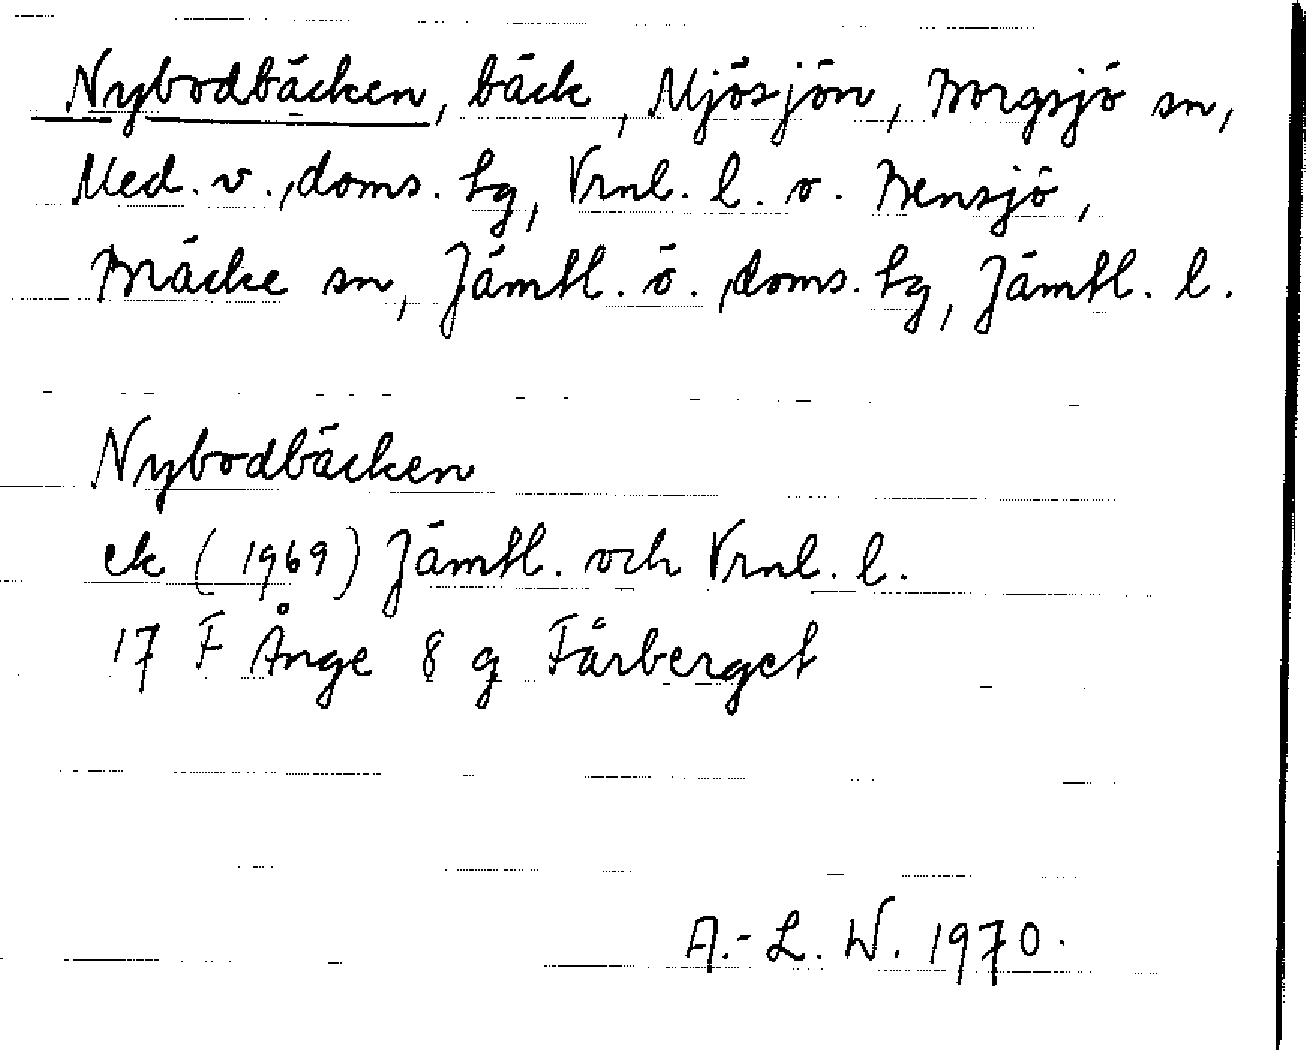 Nybodbäcken, bäck, Mjösjön, Borgsjö sn,
Med. v. doms. tg, Vrnl. l. o. Bensjö,
Bräcke sn, Jämtl. ö. doms. tg, Jämtl. l.
Nybodbäcken
ek (1969) Jämtl. och Vrnl. l.
17 F Ånge 8 g Fårberget
A.-L. W. 1970.